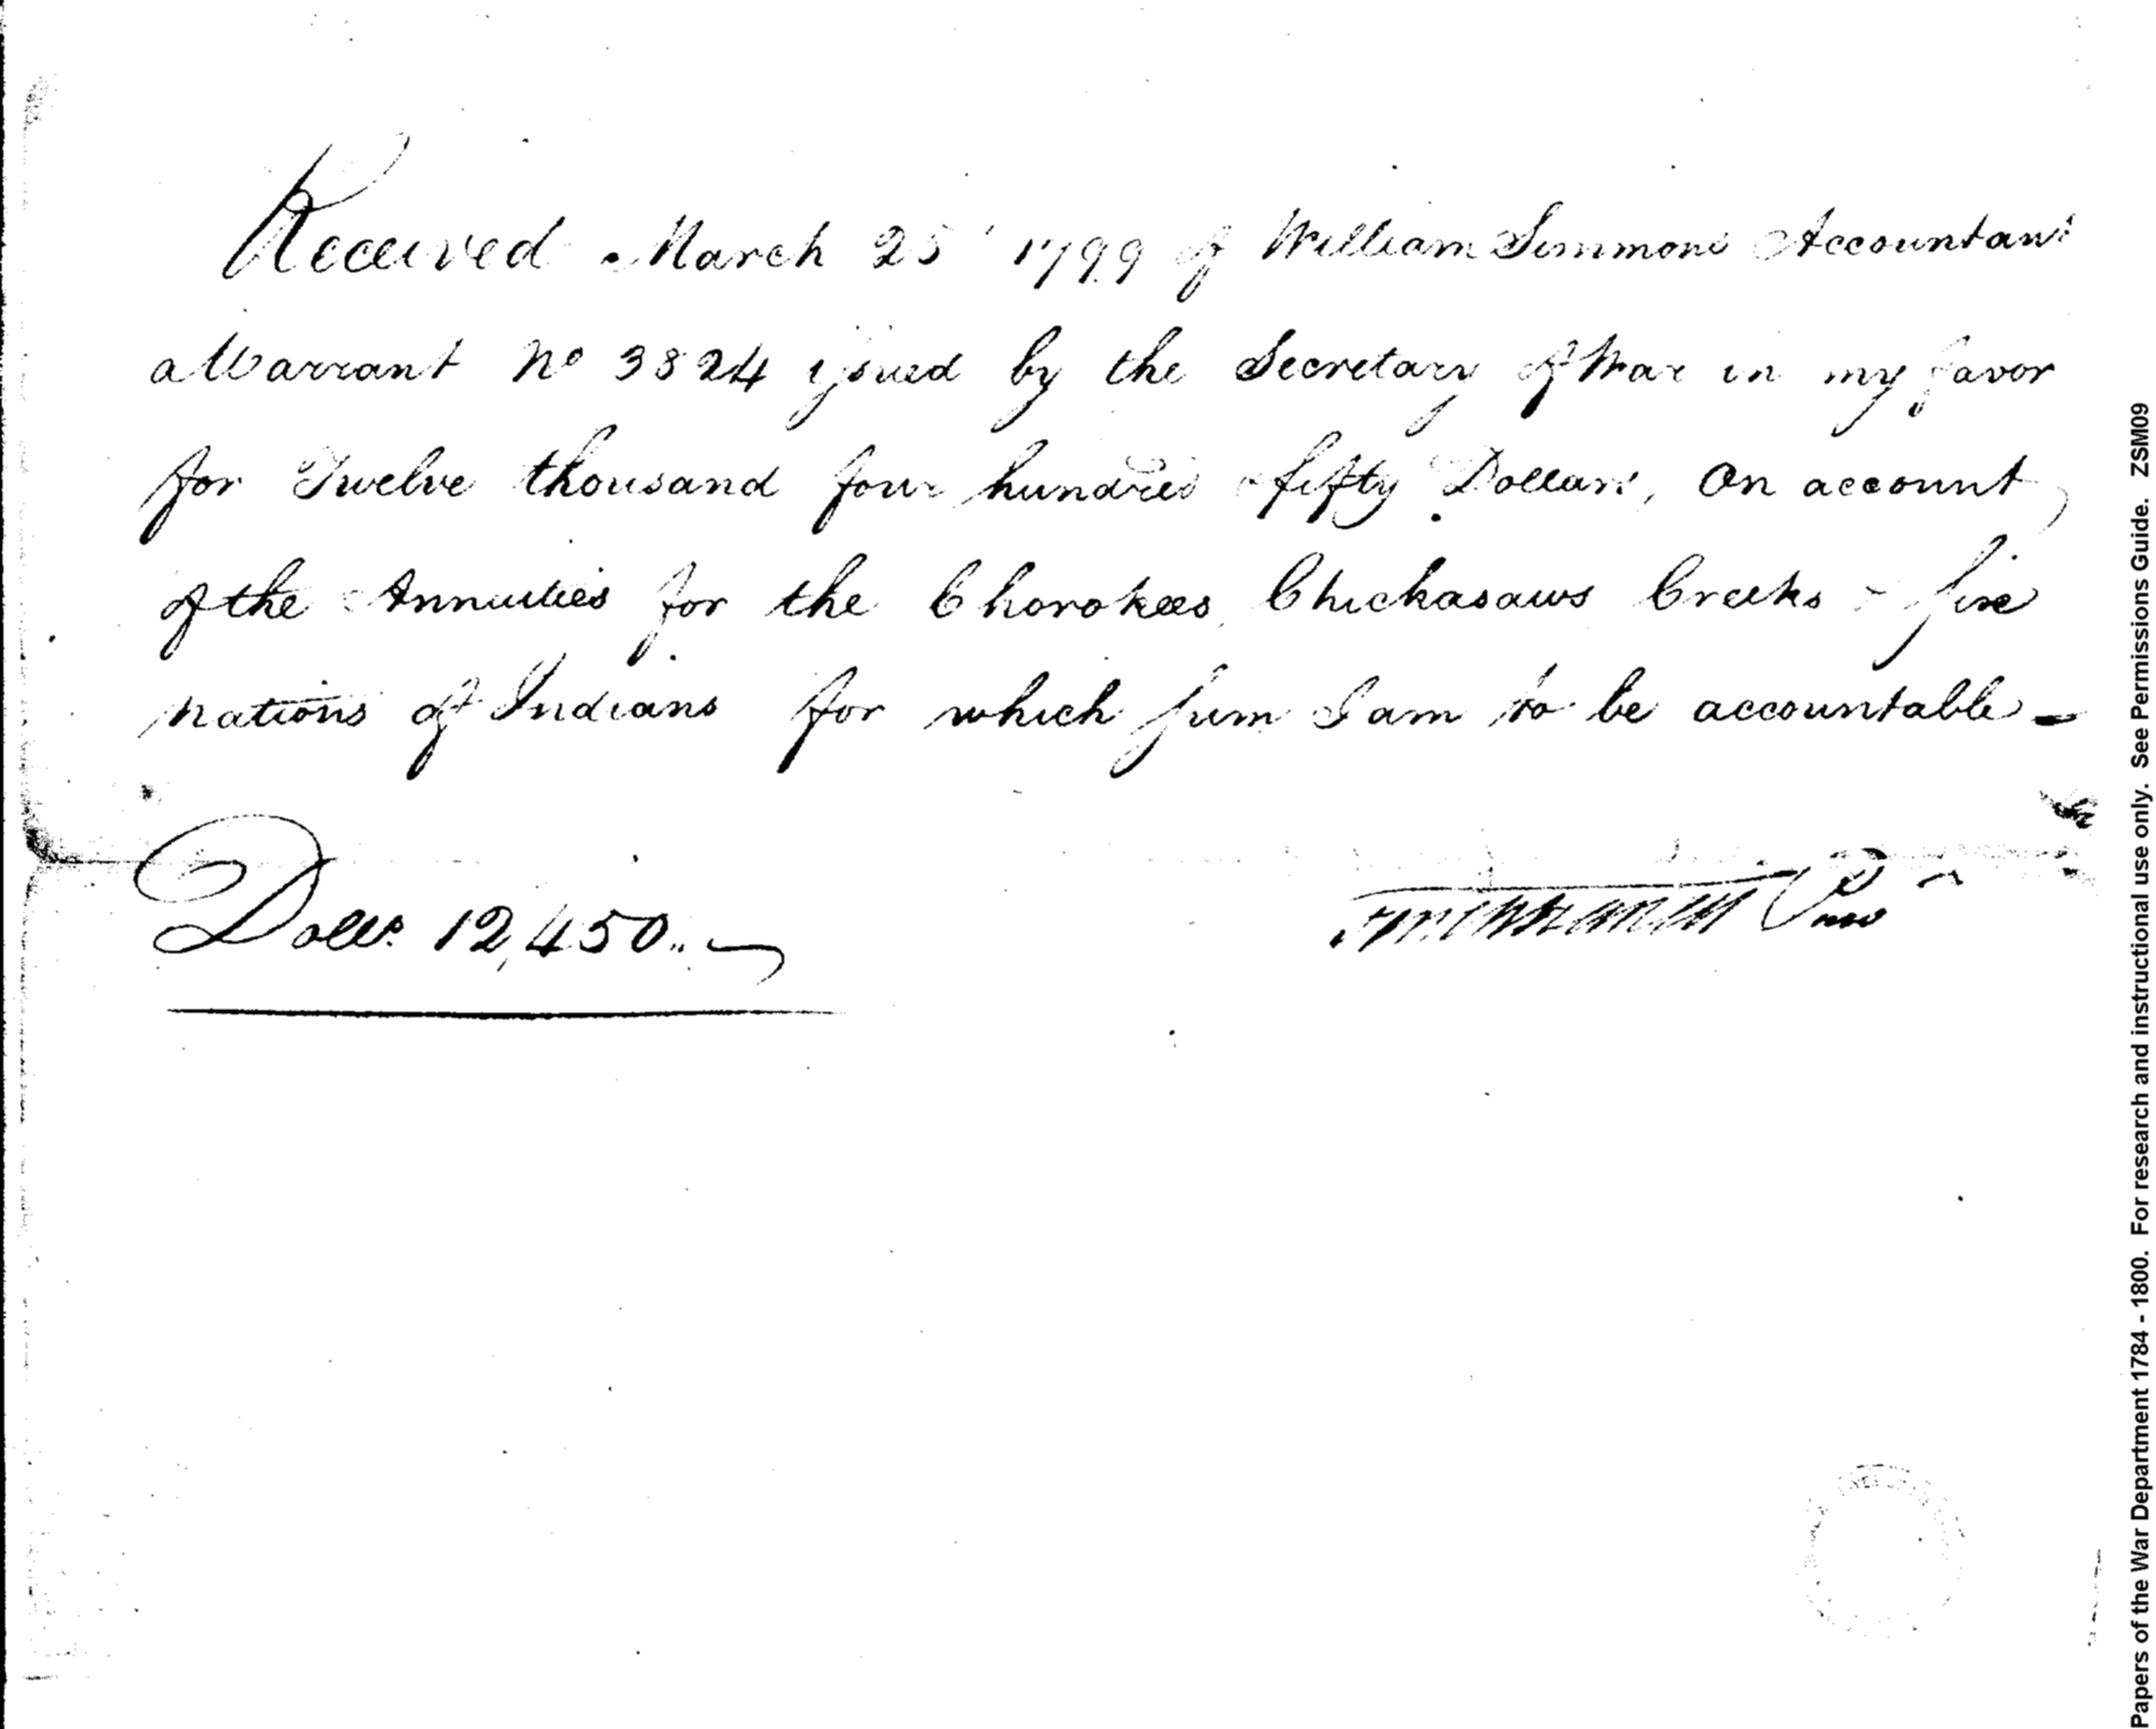 Received March 25 1799 of William Simmons Accountant
a Warrant No 3824 issued by the Secretary of War in my favor
for Twelve thousand four hundred fifty Dollars, On account
of the Annuities for the Chorokees, Chickasaws Creeks & five
nations of Indians for which sum I am to be accountable
Dolls. 12,450..
Papers of the War Department 1784 - 1800. For research and instructional use only. See Permissions Guide. ZSM09